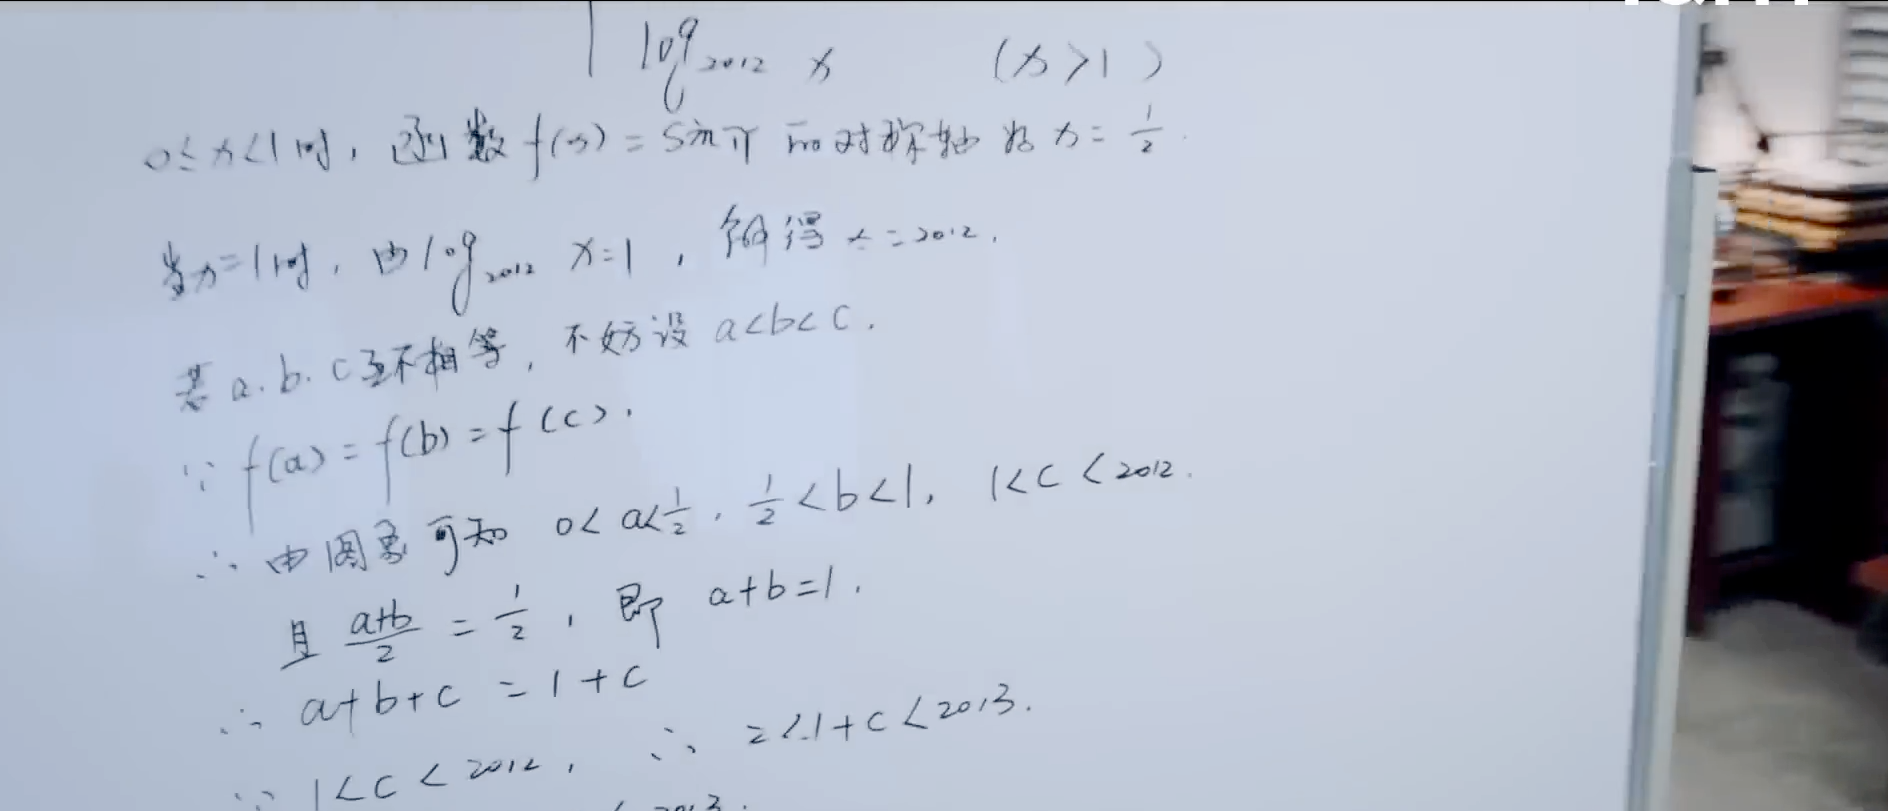 log₂₀₁₂ x (x>1)
0≤x<1时, 函数f(x)=sinπ 的对称轴为x=1/2.
当x=1时, 由log₂₀₁₂ x=1, 解得x=2012.
若a.b.c互不相等, 不妨设a<b<c.
∵ f(a)=f(b)=f(c).
∴ 由图象可知 0<a<1/2, 1/2<b<1, 1<c<2012.
且 (a+b)/2 = 1/2, 即 a+b=1.
∴ a+b+c =1+c
∵ 1<c<2012, ∴ 2<1+c<2013.